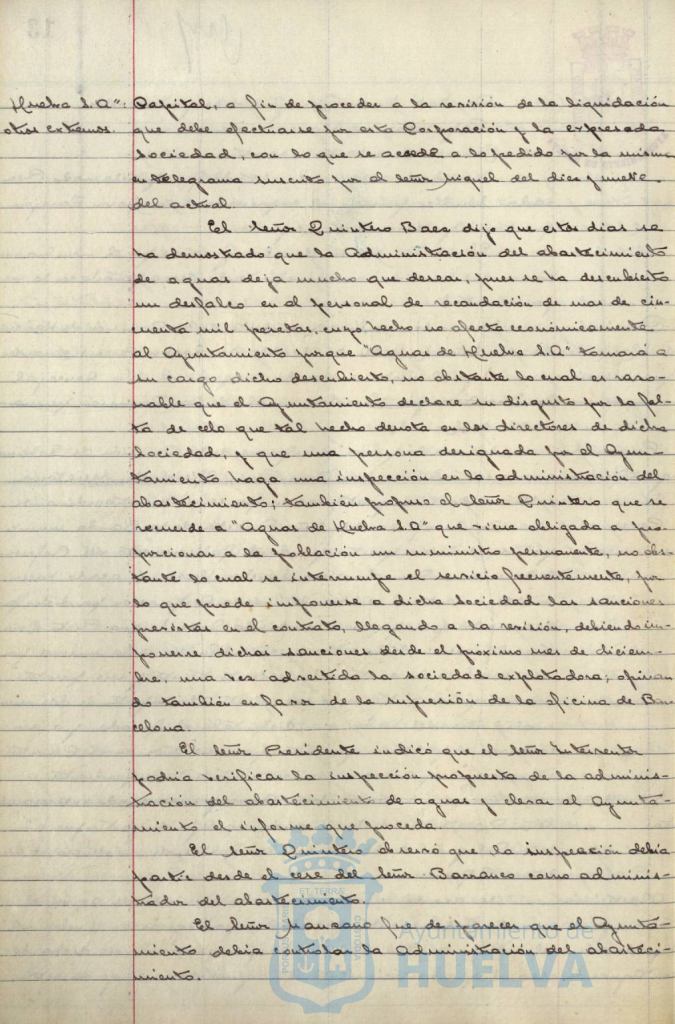 Huelva S.A": Capital, a fin de proceder a la revisión de la liquidación
otros extremos. que debe efectuarse por esta Corporación y la expresada
Sociedad, con lo que se accede a lo pedido por la misma
en telegrama suscrito por el señor Miquel del dies y nueve
del actual.
El señor Quintero Baea dijo que estos dias se
ha demostrado que la Administración del abastecimiento
de aguas deja mucho que desear, pues se ha descubierto
un desfalco en el personal de recaudación de mas de cin-
cuenta mil pesetas, cuyo hecho no afecta económicamente
al Ayuntamiento porque "Aguas de Huelva S.A" tomará a
su cargo dicho descubierto, no obstante lo cual es razo-
nable que el Ayuntamiento declare su disgusto por la fal-
ta de celo que tal hecho denota en los directores de dicha
Sociedad, y que una persona designada por el Ayun-
tamiento haga una inspección en la administración del
abastecimiento; también propuso el señor Quintero que se
recuerde a "Aguas de Huelva S.A" que viene obligada a pro-
porcionar a la población un suministro permanente, no obs-
tante lo cual se interrumpe el servicio frecuentemente, por
lo que puede imponerse a dicha Sociedad las sanciones
previstas en el contrato, llegando a la revisión, debiendo im-
ponerse dichas sanciones desde el próximo mes de diciem-
bre, una vez advertida la sociedad explotadora; opinan-
do también en favor de la supresión de la oficina de Bar-
celona.
El señor Presidente indicó que el señor Interventor
podria verificar la inspección propuesta de la adminis-
tración del abastecimiento de aguas y elevar al Ayunta-
miento el informe que proceda.
El señor Quintero observó que la inspección debia
partir desde el cese del señor Barranco como adminis-
trador del abastecimiento.
El señor Manzano fue de parecer que el Ayunta-
miento debia controlar la Administración del abasteci-
miento.
Ayuntamiento de
HUELVA